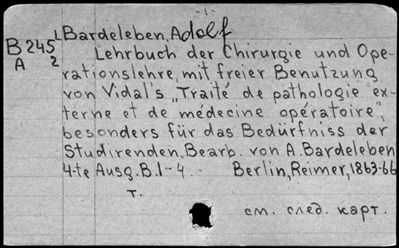 - 1 -
Bardeleben, Adolf
B 245
A 2
Lehrbuch der Chirurgie und Ope-
rationslehre, mit freier Benutzung
von Vidal's „Traité de pathologie ex-
terne et de médecine opératoire",
besonders für das Bedürfniss der
Studirenden. Bearb. von A. Bardeleben
4-te Ausg. B. 1-4. Berlin, Reimer, 1863-66
т.
см. след. карт.